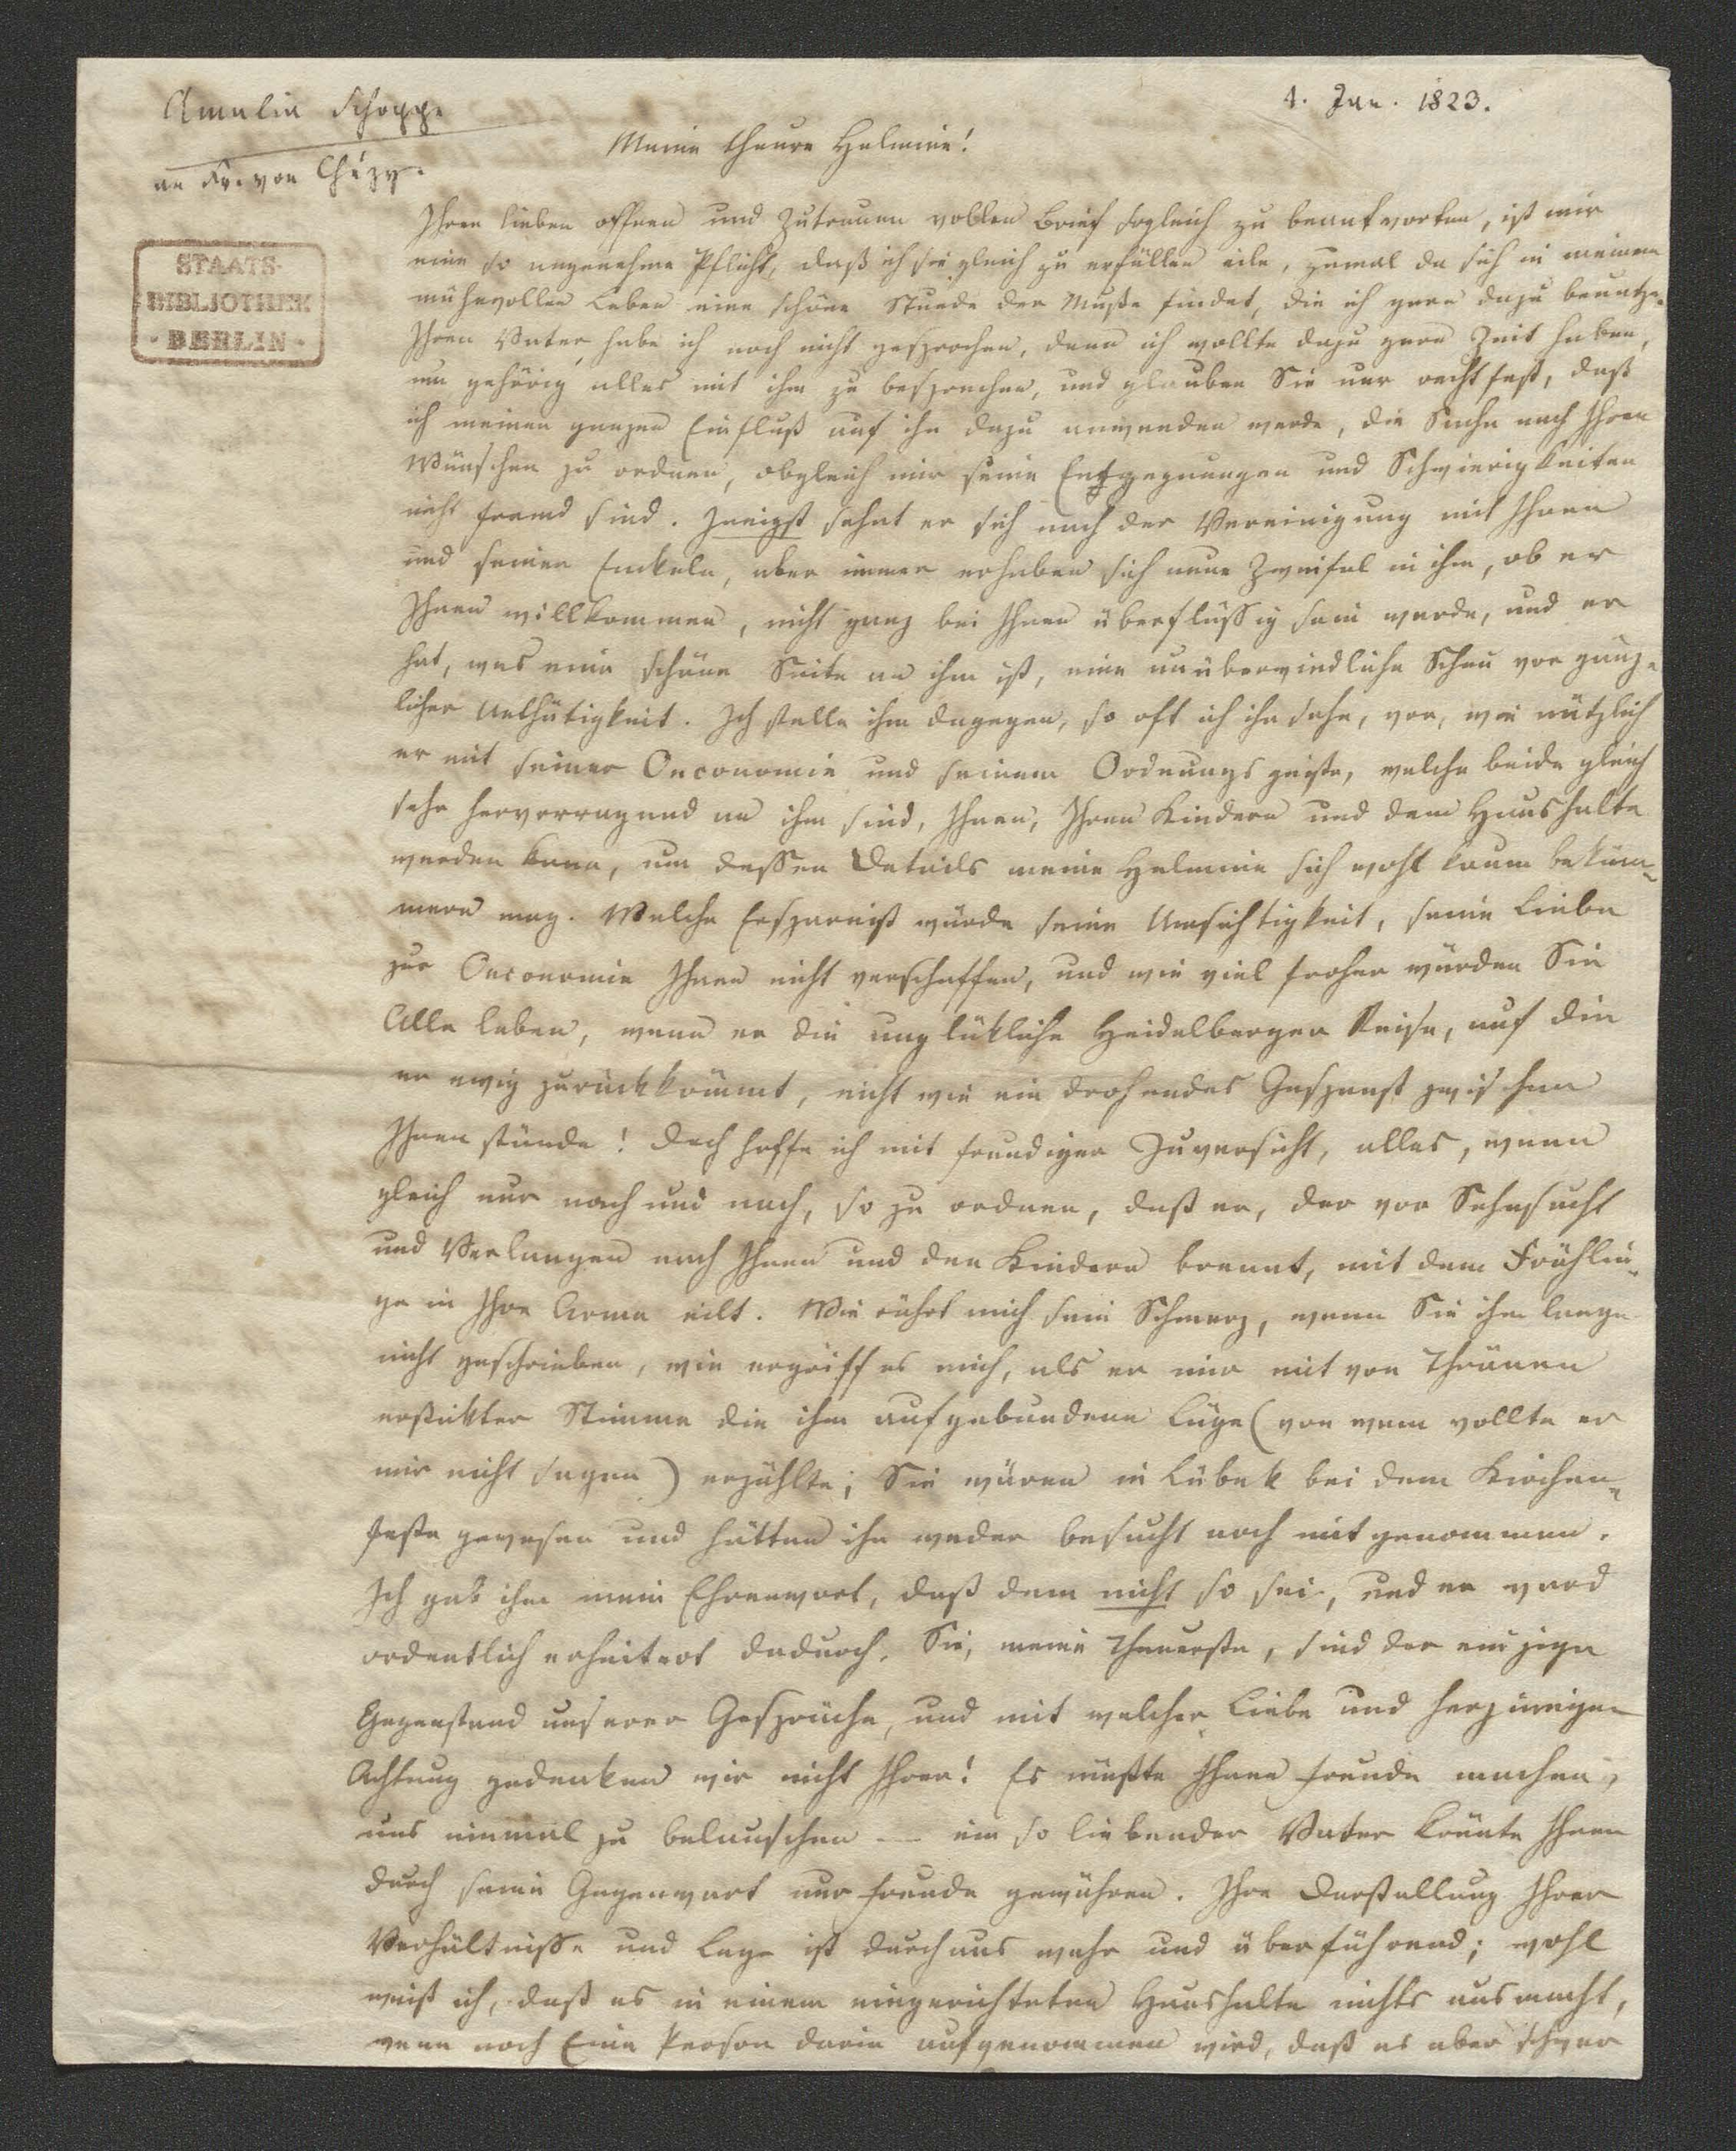 Amalia Schoppe
an Fr. von Chézy.
4. Jan. 1823.
STAATS-
BIBLIOTHEK
· BERLIN ·
Meine theure Helmine!
Ihren lieben offnen und Zutrauen vollen Brief sogleich zu beantworten, ist mir
eine so angenehme Pflicht, daß ich sie gleich zu erfüllen eile, zumal da sich in meinem
mühevollen Leben eine schöne Stunde der Muße findet, die ich gern dazu benutze.
Ihren Vater habe ich noch nicht gesprochen, denn ich wollte dazu gern Zeit haben,
um gehörig alles mit ihm zu besprechen, und glauben Sie nur recht fest, daß
ich meinen ganzen Einfluß auf ihn dazu anwenden werde, die Sache nach Ihren
Wünschen zu ordnen, obgleich mir seine Entgegnungen und Schwierigkeiten
nicht fremd sind. Innigst sehnt er sich nach der Vereinigung mit Ihnen
und seinen Enkeln, aber immer erheben sich neue Zweifel in ihm, ob er
Ihnen willkommen, nicht ganz bei Ihnen überflüssig sein werde, und er
hat, was eine schöne Seite an ihm ist, eine unüberwindliche Scheu vor gänz-
licher Unthätigkeit. Ich stelle ihm dagegen, so oft ich ihn sehe, vor, wie nützlich
er mit seiner Oeconomie und seinem Ordnungsgeiste, welche beide gleich
sehr hervorragend an ihm sind, Ihnen, Ihren Kindern und dem Haushalte
werden kann, um dessen Details meine Helmine sich wohl kaum beküm-
mern mag. Welche Ersparniß würde seine Umsichtigkeit, seine Liebe
zur Oeconomie Ihnen nicht verschaffen, und wie viel froher würden Sie
Alle leben, wenn er die unglükliche Heidelberger Reise, auf die
er ewig zurückkömmt, nicht wie ein drohendes Gespenst zwischen
Ihnen stünde! Doch hoffe ich mit freudiger Zuversicht, alles, wenn
gleich nur nach und nach, so zu ordnen, daß er, der vor Sehnsucht
und Verlangen nach Ihnen und den Kindern brennt, mit dem Frühlin-
ge in Ihre Arme eilt. Wie rührt mich sein Schmerz, wenn Sie ihm lange
nicht geschrieben, wie ergriff es mich, als er mir mit von Thränen
erstikter Stimme die ihm aufgebundene Lüge (von wem wollte er
mir nicht sagen) erzählte; Sie wären in Lübek bei dem Kirchen-
feste gewesen und hätten ihn weder besucht noch mitgenommen.
Ich gab ihm mein Ehrenwort, daß dem nicht so sei, und er ward
ordentlich erheitert dadurch. Sie, meine Theuerste, sind der einzige
Gegenstand unserer Gespräche, und mit welcher Liebe und herzinniger
Achtung gedenken wir nicht Ihrer! Es müßte Ihnen Freude machen,
uns einmal zu belauschen — ein so liebender Vater könnte Ihnen
durch seine Gegenwart nur Freude gewähren. Ihre Darstellung Ihrer
Verhältnisse und Lage ist durchaus wahr und überführend; wohl
weiß ich, daß es in einem eingerichteten Haushalte nichts ausmacht,
wenn noch Eine Person darin aufgenommen wird, daß es aber schwer